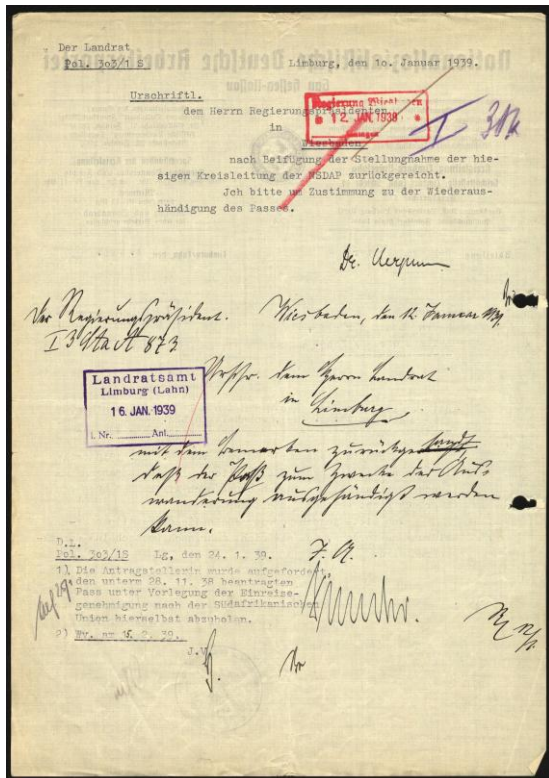 Der Landrat
Pol. 303/1 S
Limburg, den 1o. Januar 1939.
Urschriftl.
dem Herrn Regierungspräsidenten
in
Wiesbaden
nach Beifügung der Stellungnahme der hie-
sigen Kreisleitung der NSDAP zurückgereicht.
Jch bitte um Zustimmung zu der Wiederaus-
händigung des Passes.
Regierung
12. JAN. 1939
I
Der Regierungspräsident. Wiesbaden, den 12. Januar 1939
I 3
Landratsamt
Limburg (Lahn)
16. JAN. 1939
I. Nr. Ant.
dem Herrn Landrat
in Limburg
mit dem Bemerken zurückgesandt,
daß der Paß zum Zwecke der Aus-
wanderung ausgehändigt werden
kann.
J. A.
D.L.
Pol. 303/1S Lg, den 24. 1. 39.
1) Die Antragstellerin wurde aufgefordert
den unterm 28. 11. 38 beantragten
Pass unter Vorlegung der Einreise-
genehmigung nach der Südafrikanischen
Union hierselbst abzuholen.
2) Wv. am 15. 2. 39.
J.V.